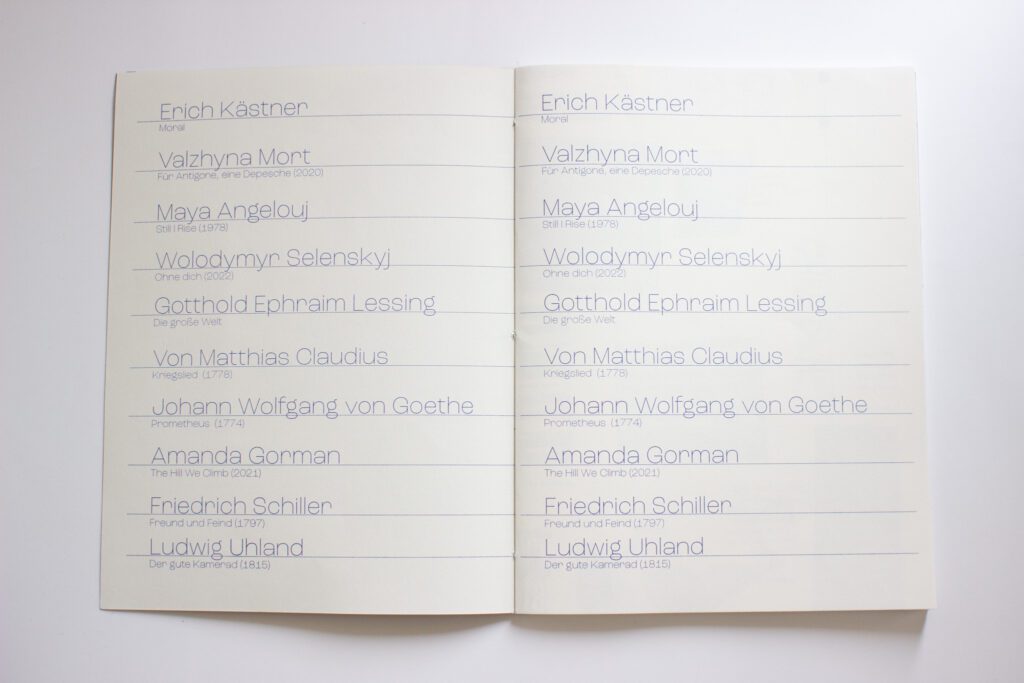 Erich Kästner
Moral
Valzhyna Mort
Für Antigone, eine Depesche (2020)
Maya Angelouj
Still I Rise (1978)
Wolodymyr Selenskyj
Ohne dich (2022)
Gotthold Ephraim Lessing
Die große Welt
Von Matthias Claudius
Kriegslied (1778)
Johann Wolfgang von Goethe
Prometheus (1774)
Amanda Gorman
The Hill We Climb (2021)
Friedrich Schiller
Freund und Feind (1797)
Ludwig Uhland
Der gute Kamerad (1815)
Erich Kästner
Moral
Valzhyna Mort
Für Antigone, eine Depesche (2020)
Maya Angelouj
Still I Rise (1978)
Wolodymyr Selenskyj
Ohne dich (2022)
Gotthold Ephraim Lessing
Die große Welt
Von Matthias Claudius
Kriegslied (1778)
Johann Wolfgang von Goethe
Prometheus (1774)
Amanda Gorman
The Hill We Climb (2021)
Friedrich Schiller
Freund und Feind (1797)
Ludwig Uhland
Der gute Kamerad (1815)